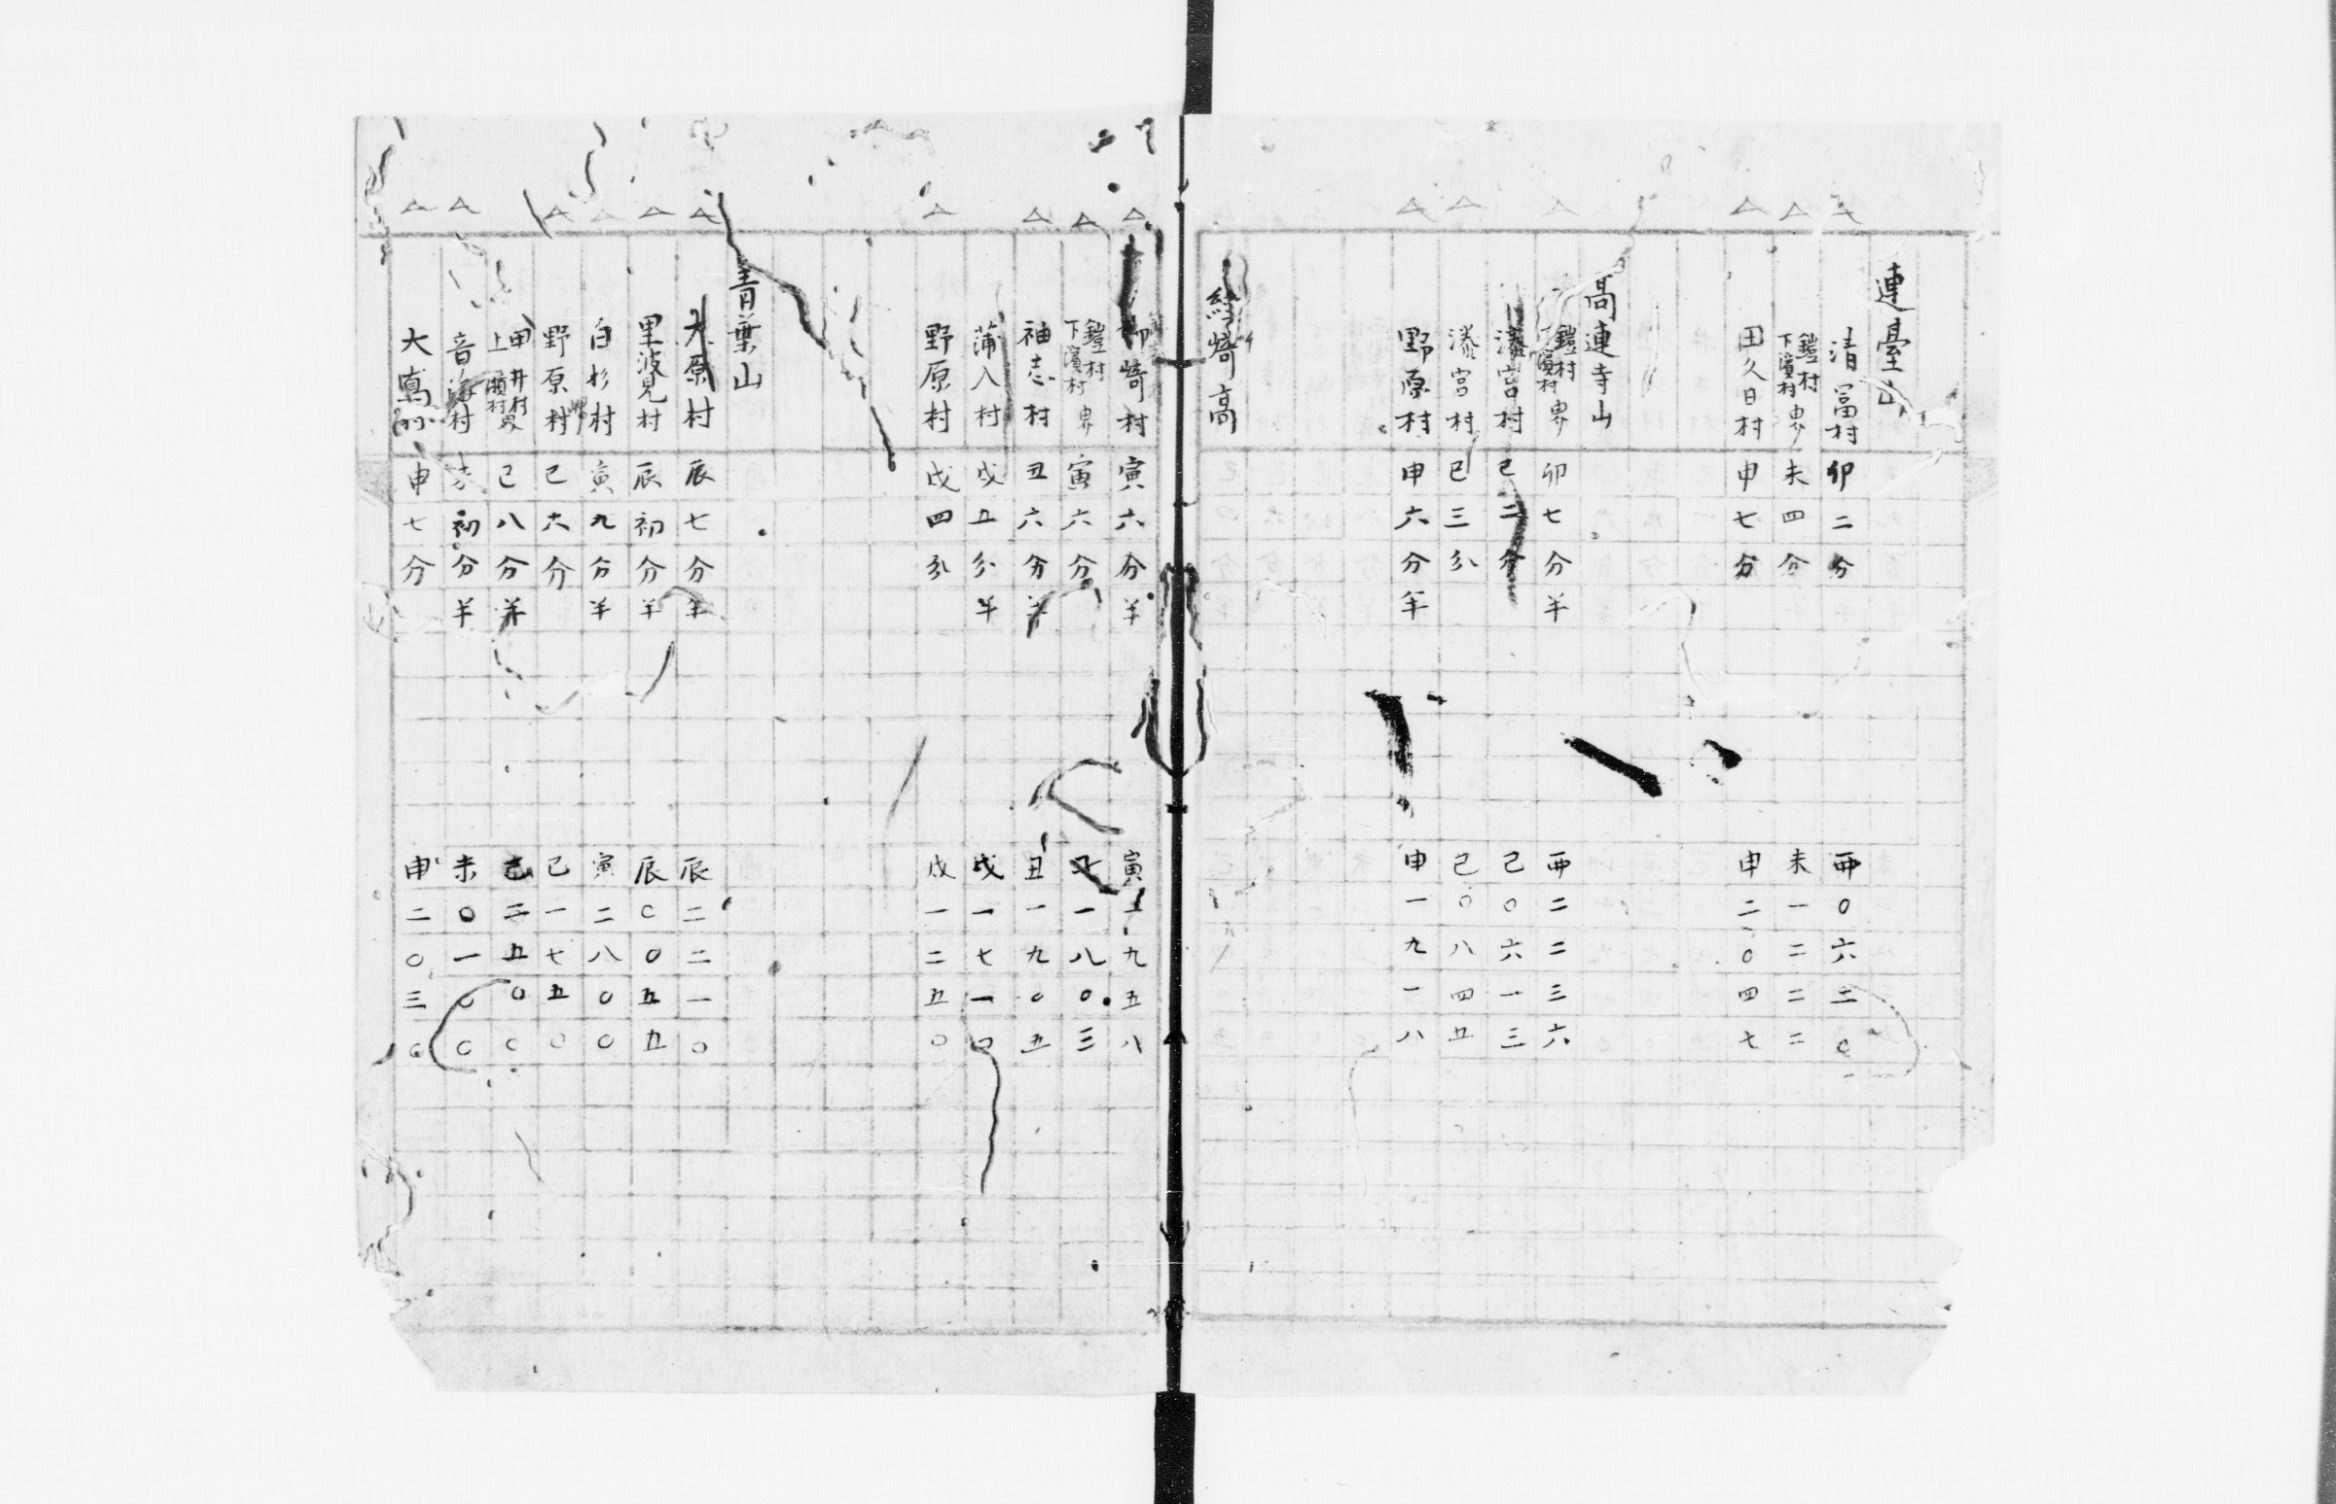 連臺山
清冨村 卯二分 酉〇六二〇
鎧村下濱村界 未四分 未一二二二
田久日村 申七分 申二〇四七
高連寺山
鎧村下濱村界 卯七分半 酉二二三六
湊宮村 巳二分 巳〇六一三
湊宮村 巳三分 巳〇八四五
野原村 申六分半 申一九一八
經ヶ﨑高
﨑村 寅六分半 寅一九五八
鎧村下濱村界 寅六分 一八〇三
袖志村 丑六分半 丑一九〇五
蒲入村 戌五分半 戌一七一〇
野原村 戌四分 戌一二五〇
青葉山
大原村 辰七分半 辰二二一〇
里波見村 辰初分半 辰〇〇五五
白杉村 寅九分半 寅二八〇〇
野原村 巳六分 巳一七五〇
井村上瀬村界 巳八分半 巳二五〇〇
音海村 初分半 未〇一〇〇
大島 申七分 申二〇三〇